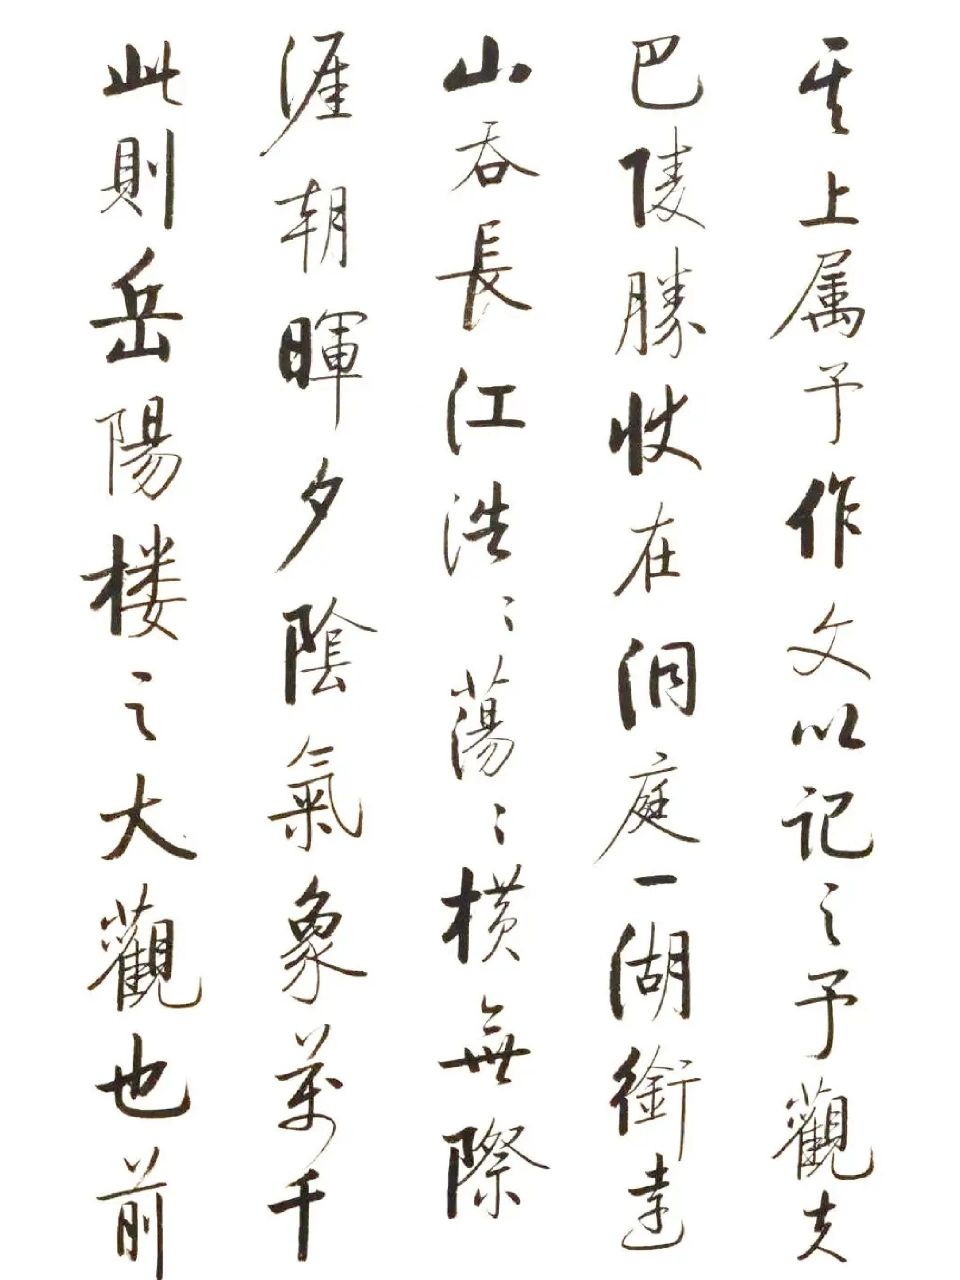 其上属予作文以记之予觀夫
巴陵勝状在洞庭一湖銜遠
山吞長江浩〻蕩〻横無際
涯朝暉夕陰氣象萬千
此則岳陽楼之大觀也前